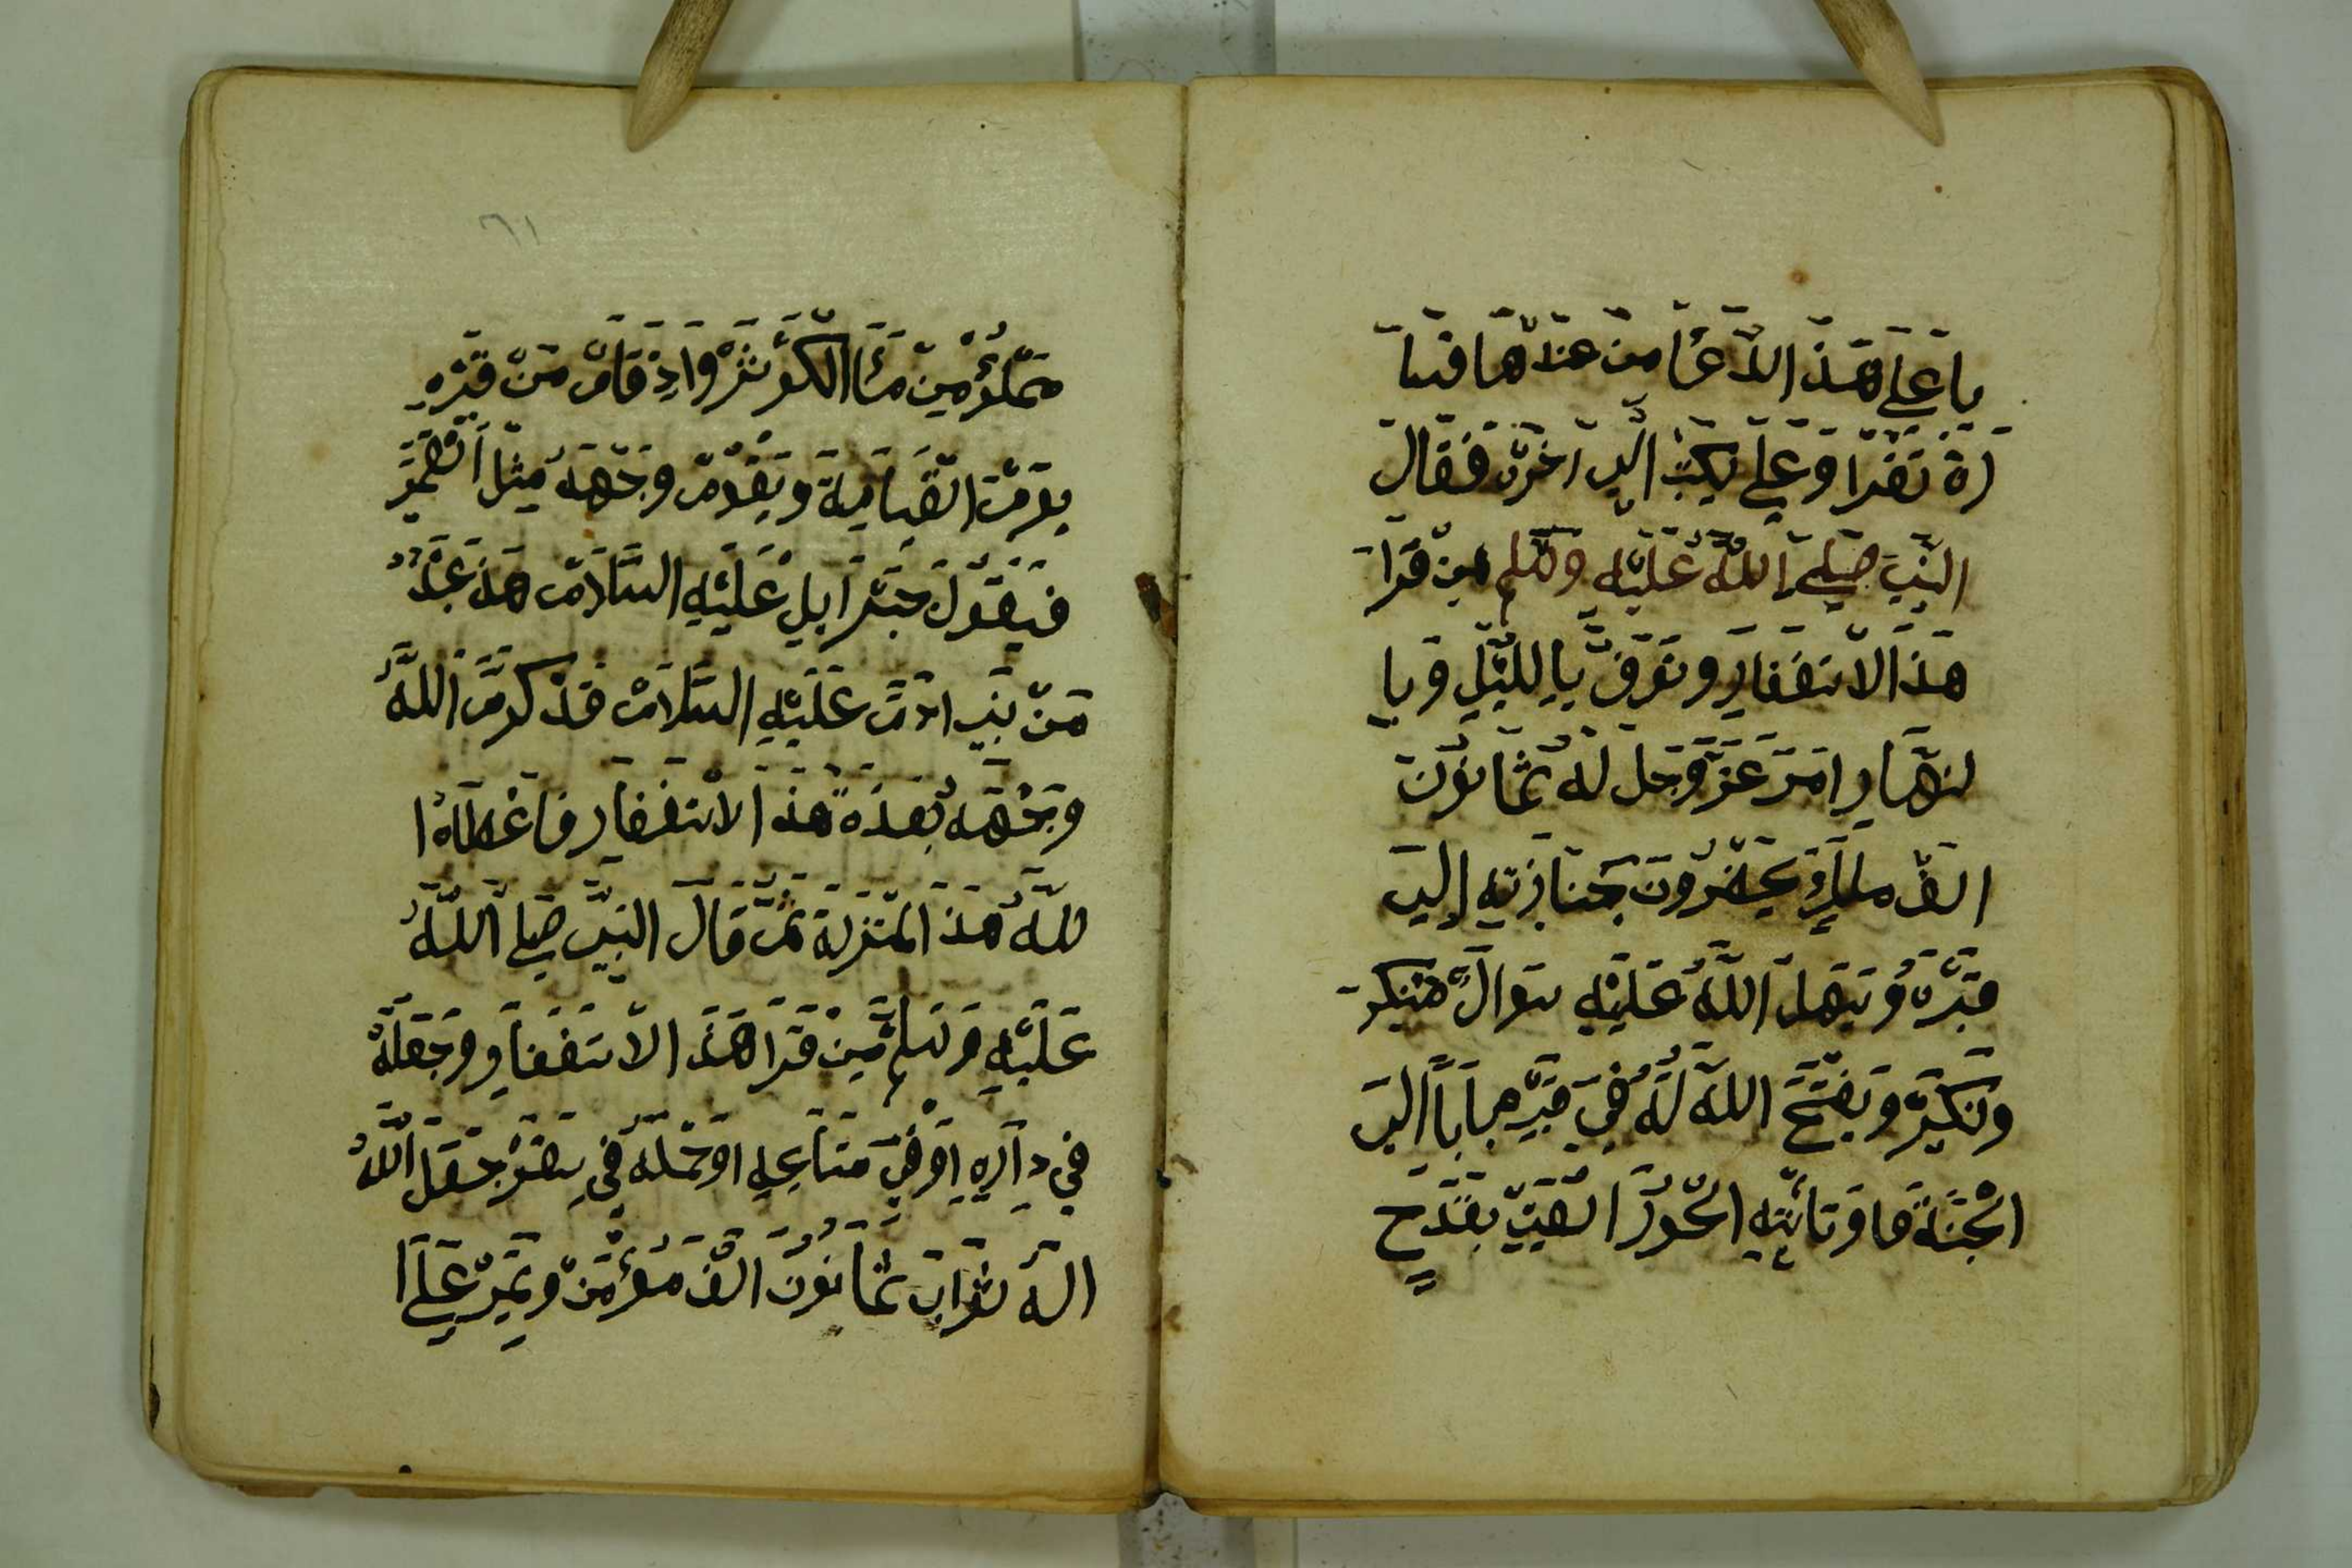 يا علي هذ الدعا من عندها فتا
رة تقرا وعلي يكتب الي اخره فقال
النبي صلي الله عليه وسلم من قرا
هذ الاستغفار وتوفي باليل وبا
لنهار امر عز وجل له ثمانون
الف ملك يحضرون جنازته الي
قبره ويسهل الله عليه سوال منكر
ونكير ويفتح الله له في قبره بابا الي
الجنة وتأتيه الحور العين بقدح
٦١
مملؤ من مأ الكوثر واذ قام من قبره
يوم القيامة ويقوم وجهه مثل القمر
فيقول جبرايل عليه السلام هذ عبد
من بني ادم عليه السلام قد كرم الله
وجهه بهذه هذ الاستغفار فاعطاه ا
لله هذ المنزلة ثم قال النبي صلي الله
عليه وسلم من قرا هذ الاستغفار وجعله
في داره او في متاعه او حمله في سفر جعل الله
اله ثواب ثمانون الف مؤمن ويمر علي ا